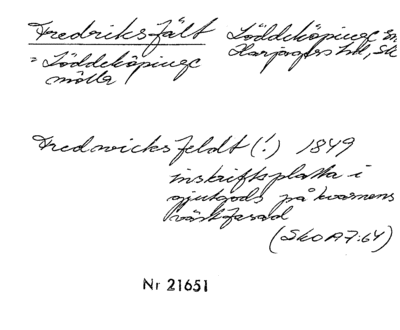 Fredriksfält Löddeköpinge sn
= Löddeköpinge Harjagers hd, Sk
mölla
Fredwicksfeldt (!) 1849
inskriftsplatta i
gjutgods på kvarnens
västfasad
(SkOA7:64)
Nr 21651